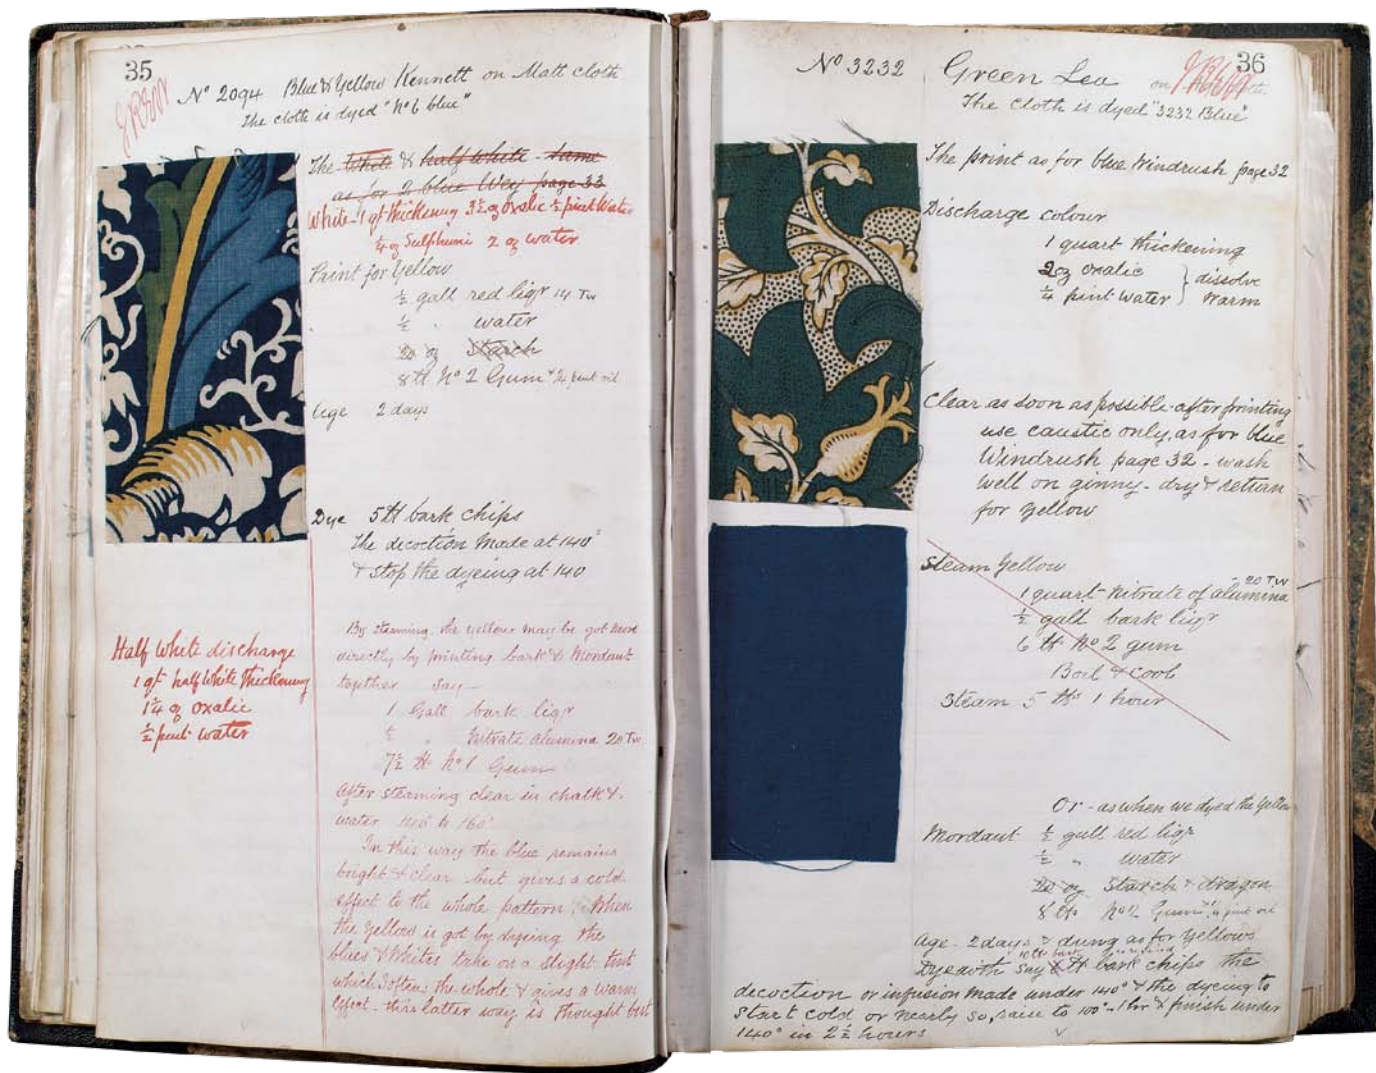 35
No 2094 Blue & Yellow Kennett on Matt cloth
The cloth is dyed "No 6 blue"
The White & half white - same
as for 2 blue Wey page 33
White - 1 qt thickening 3½ oz oxalic ½ pint Water
¼ oz Sulphuric 2 oz water
Print for Yellow
½ gall red liqr 14 Tw
½ " water
20 oz Starch
8 lb No 2 Gum & ¼ pint oil
Age 2 days
Dye 5 lb bark chips
The decoction made at 140°
& stop the dyeing at 140
Half White discharge
1 qt half White Thickening
1¼ oz oxalic
½ pint water
By steaming, the yellow may be got more
directly by printing bark & Mordant
together say -
1 Gall bark liqr
½ " Nitrate alumina 20 Tw
7½ lb No 1 Gum
After steaming clear in chalk &
water 140° to 160°
In this way the blue remains
bright & clear but gives a cold
effect to the whole pattern. When
the yellow is got by dyeing the
blues & Whites take on a slight tint
which softens the whole & gives a warm
effect - this latter way is thought best
36
No 3232 Green Lea on
The cloth is dyed "3232 Blue"
The print as for blue Windrush page 32
Discharge colour
1 quart thickening
2 oz oxalic } dissolve
¼ pint water } warm
Clear as soon as possible after printing
use caustic only, as for blue
Windrush page 32 - wash
well on ginny - dry & return
for yellow
Steam Yellow
1 quart Nitrate of alumina 20 Tw
½ gall bark liqr
6 lb No 2 gum
Boil & cool
Steam 5 lbs 1 hour
Or - as when we dyed the yellow
Mordant ½ gall red liqr
½ " water
20 oz Starch & dragon
8 lbs No 2 Gum ¼ pint oil
Age - 2 days & dung as for yellows
Dye with say 10 lb bark lb bark chips the
decoction or infusion made under 140° & the dyeing to
start cold or nearly so, raise to 100° - 1 hr & finish under
140° in 2½ hours